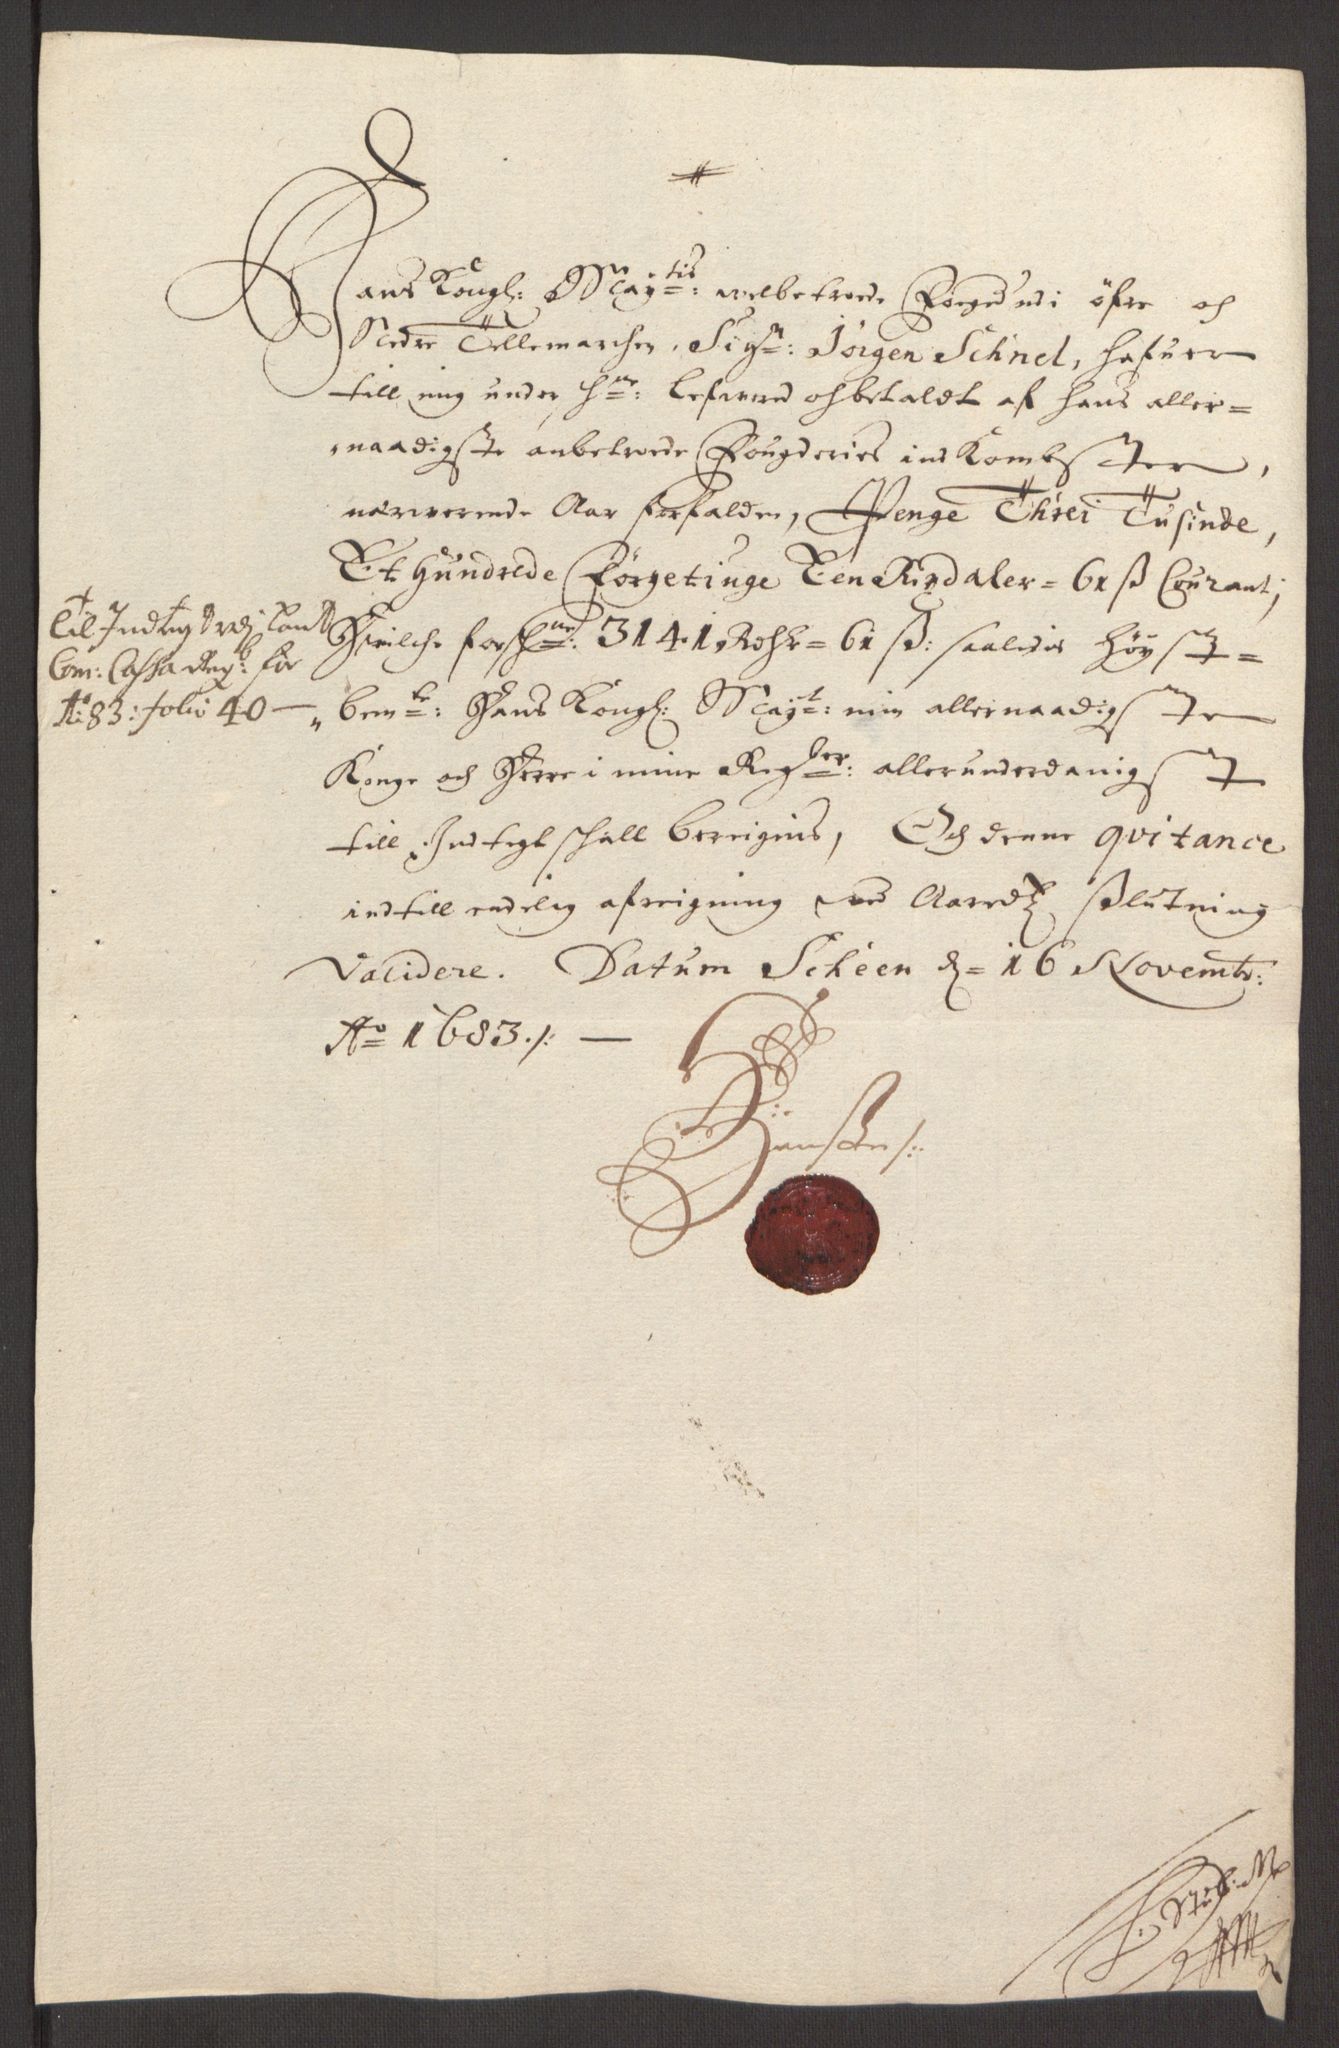 Hans Kongl: Maytis: welbetroede Foeged udi öfre och
Nedre Tellemarchen, Sigr: Jörgen Schnel, hafuer
till mig under hne: lefwered oh betaldt af hans aller=
naadigste anbetroede Fougderies ind Kombster,
nærwerende Aar forfalden, Penge Threi Tusinde,
Et Hundrede Förgetiuge Een Rixdaler = 61 ß Courant;
Hwilche forschne: 3141 Rdhr = 61 ß: saaledes Höyst=
bemte: Hans Kongl: Mayt: min allernaadigste
Konge och Herre i mine Regber: allerunderdanigst
till Indtegt schall bereignis, Och denne qvitance
indtill endelig afreigning ved Aaredtz Slutning
Validere. Datum Scheen d = 16 Novembr:
Ao 1683 ./: —
Til Indtegt udj Land
Com: Cassa Regb: for
Ao: 83: folio 40 —
Hansten